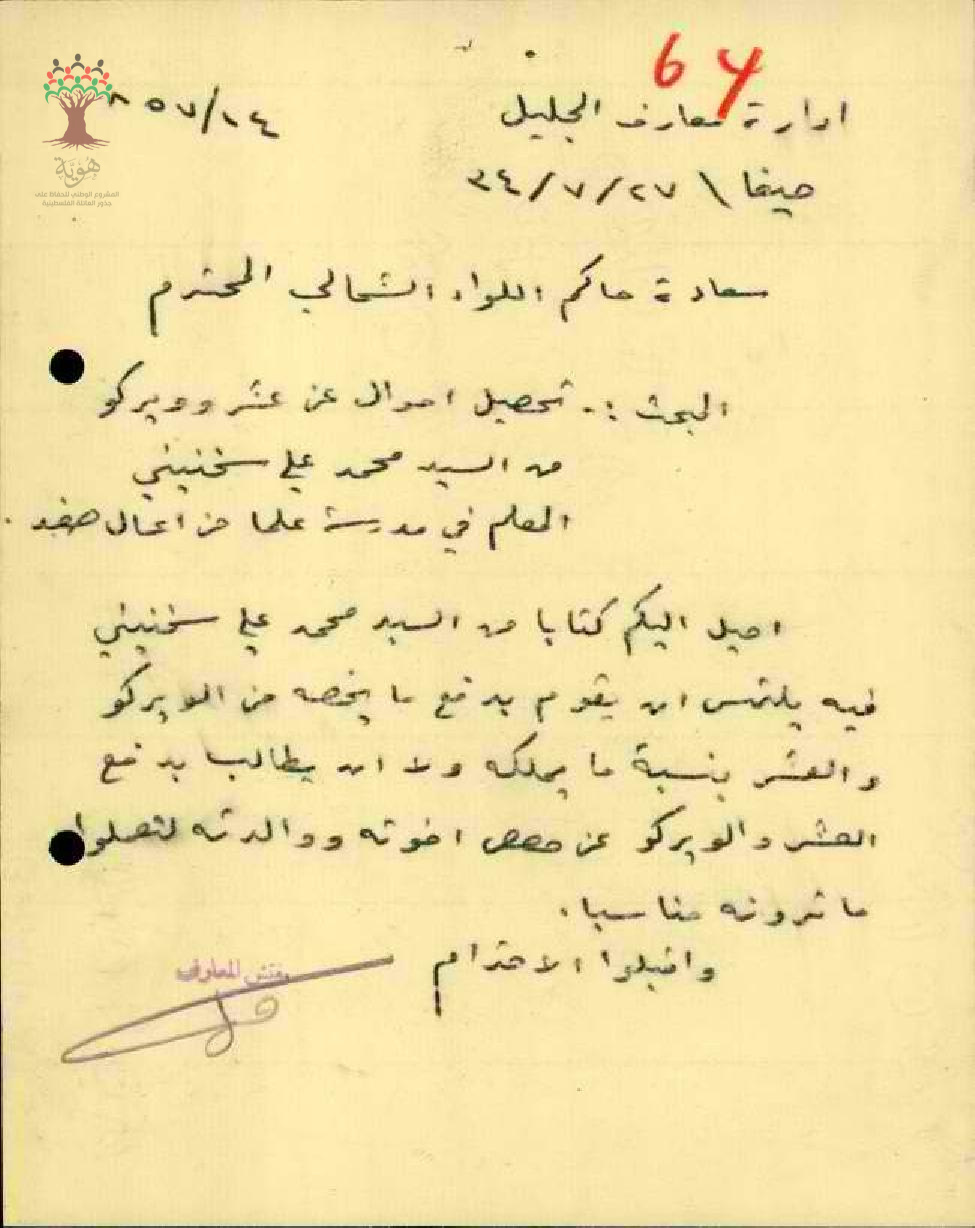 64
ادارة معارف الجليل
٨٥٧/١٤
حيفا \ ٢٧/٧/٣٤
هُوِيَّة
المشروع الوطني للحفاظ على
جذور العائلة الفلسطينية
سعادة حاكم اللواء الشمالي المحترم
البحث :. تحصيل اموال عن عشر وويركو
من السيد محمد علي سخنيني
المعلم في مدرسة علما من اعمال صفد .
احيل اليكم كتابا من السيد محمد علي سخنيني
فيه يلتمس ان يقوم بدفع ما يخصه من الويركو
والعشر بنسبة ما يملكه ولا ان يطالب بدفع
العشر والويركو عن حصص اخوته ووالدته لتعملوا
ما ترونه مناسبا.
واقبلوا الاحترام
مفتش المعارف